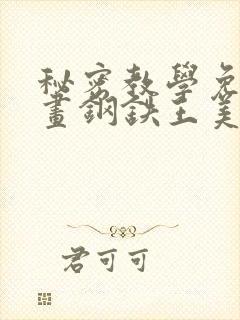 秘密教學免
畫鋼鉄王美
君可可